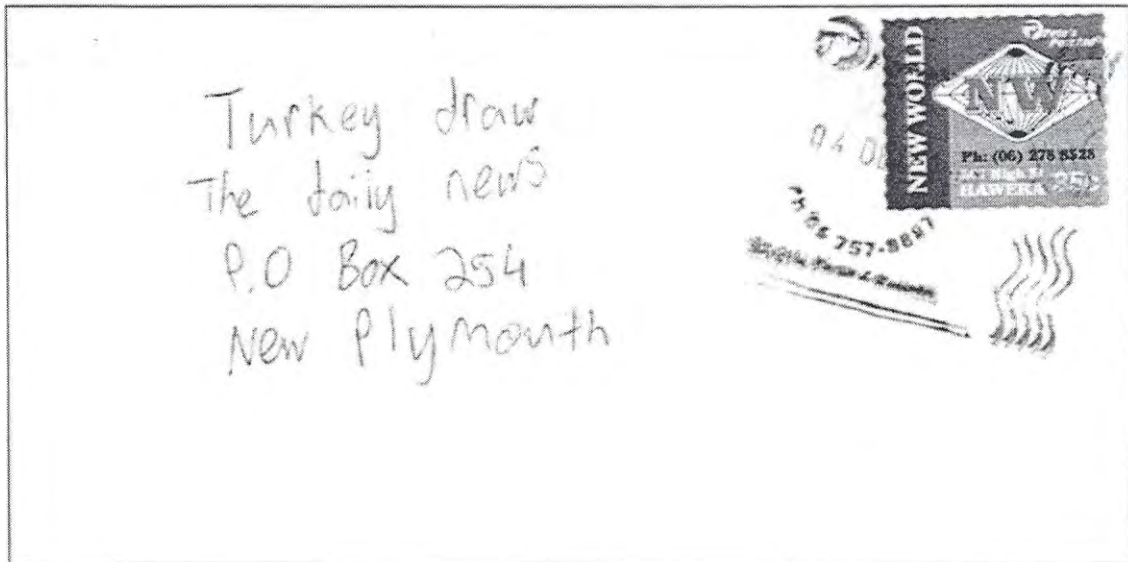 Turkey draw
The daily news
P.O Box 254
New Plymouth
NEW WORLD
NW
Ph: (06) 278 8528
HAWERA 25c
04 DE
PH 06 757-8687